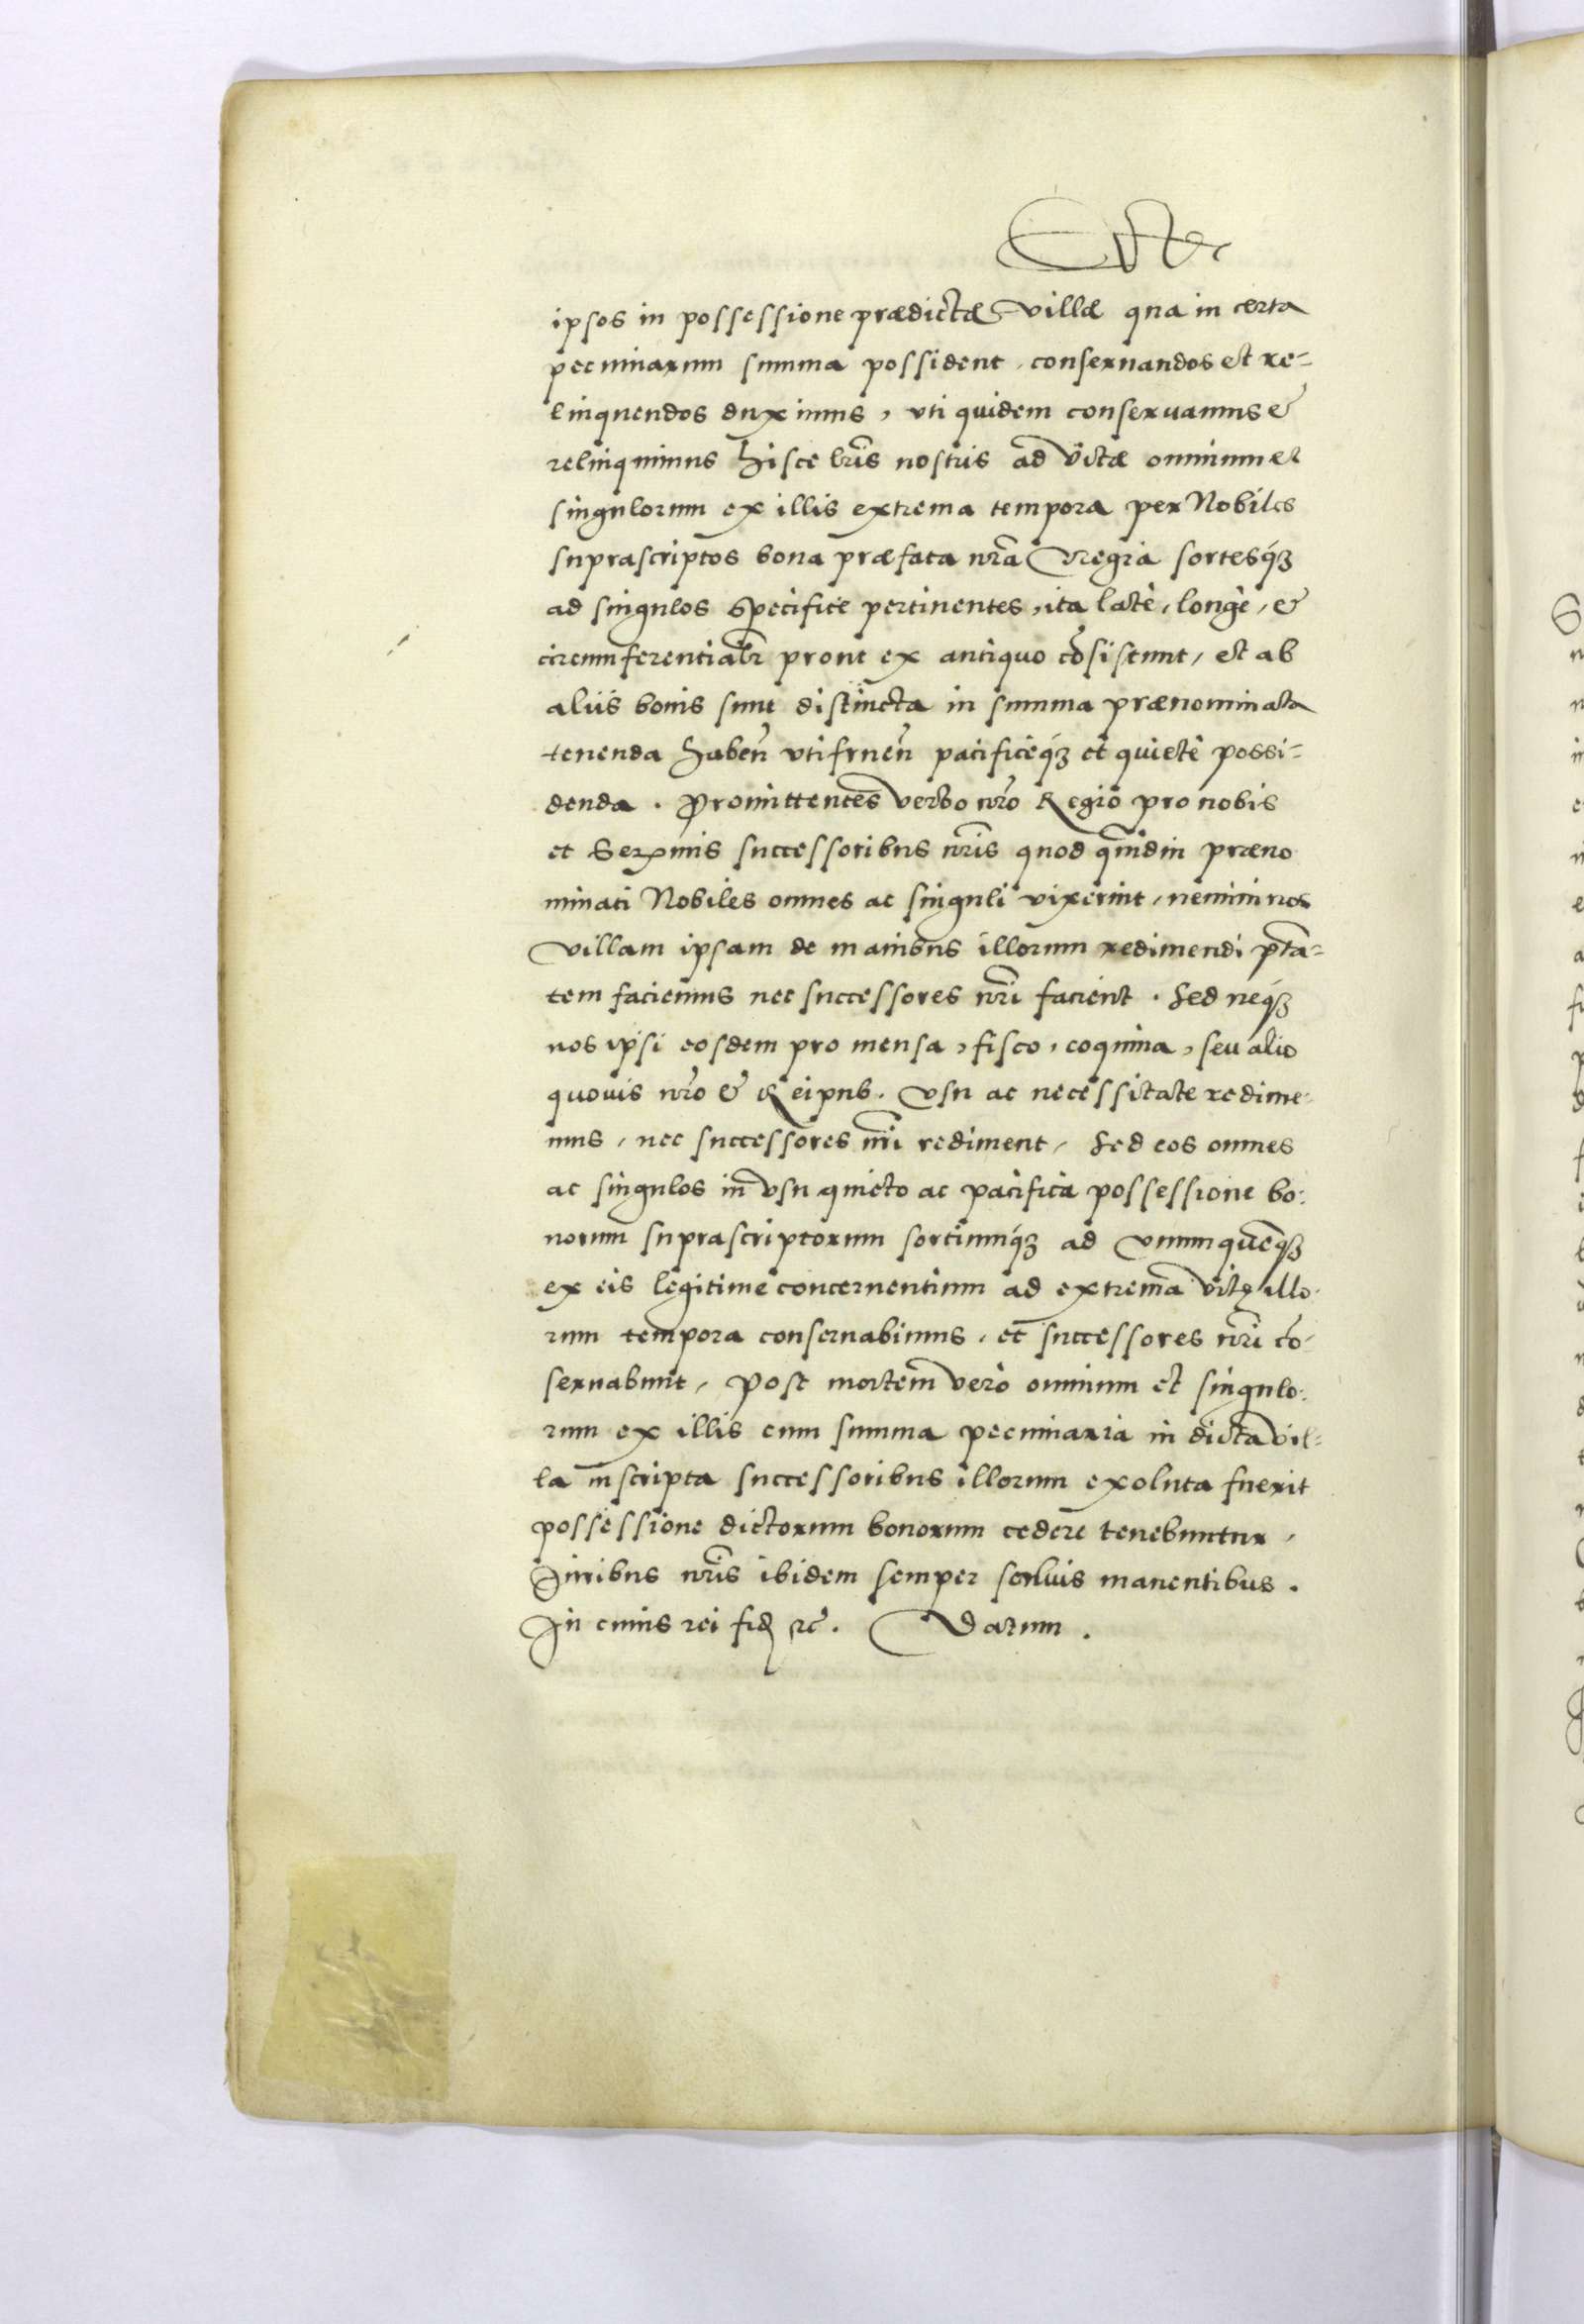 ipsos in possessione prædictæ villæ qua in certa
pecuniarum summa possident, conseruandos et re-
linquendos duximus, vti quidem conseruamus &
relinquimus hisce lr̃is nostris ad vitæ omnium et
singulorum ex illis extrema tempora per Nobiles
suprascriptos bona præfata nr̃a Regia sortesq́ꝫ
ad singulos specifice pertinentes, ita latè, longè, &
circumferentialr̃ prout ex antiquo cõsistunt, et ab
aliis bonis sunt distincta in summa prænominata
tenenda haben̄ vtifruen̄ pacificeq́ꝫ et quietè possi-
denda. Promittentes verbo nr̃o Regio pro nobis
et Serꝫmis successoribus nr̃is quod qm̃diu præno
minati Nobiles omnes ac singuli vixerint, nemini nos
villam ipsam de manibus illorum redimendi ptã-
tem faciemus nec successores nr̃i facient. Sed neq́ꝫ
nos ipsi eosdem pro mensa, fisco, coquina, seu alio
quouis nr̃o & Reipub. vsu ac necessitate redime-
mus, nec successores nr̃i rediment, Sed eos omnes
ac singulos in vsu quieto ac pacifica possessione bo-
norum suprascriptorum sortiumq́ꝫ ad vnumquẽqꝫ
ex eis legitime concernentium ad extrema vitę illo-
rum tempora conseruabimus, et successores nr̃i cõ-
seruabunt, Post mortem verò omnium et singulo-
rum ex illis cum summa pecuniaria in dicta vil-
la inscripta successoribus illorum exoluta fuerit
possessione dictorum bonorum cedere tenebuntur,
Iuribus nr̃is ibidem semper saluis manentibus.
In cuius rei fid ꝛc. Datum.